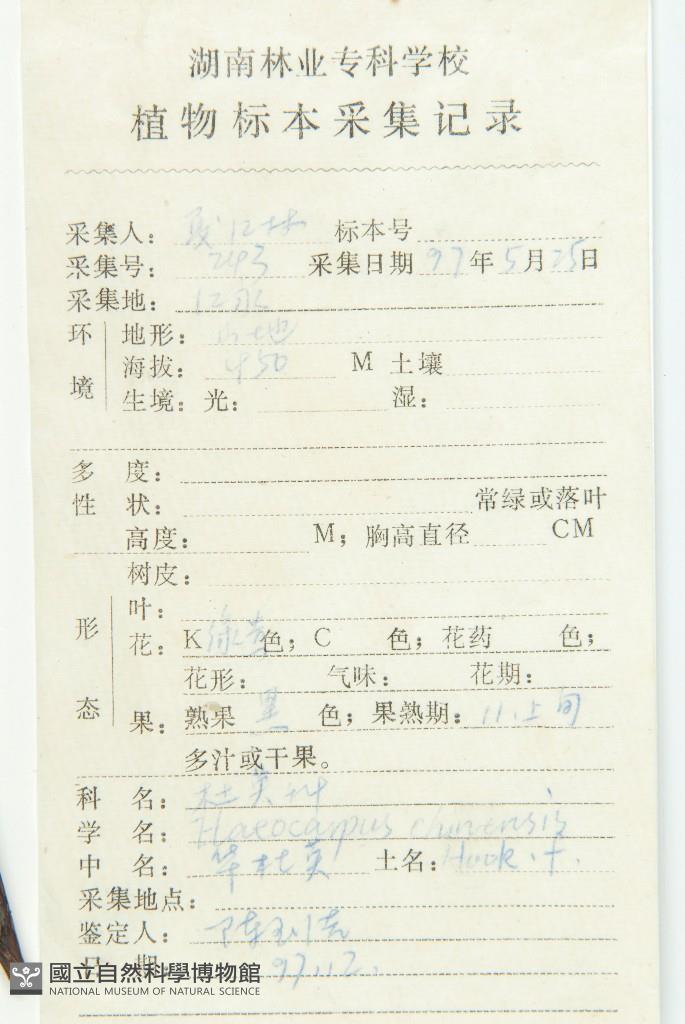 湖南林业专科学校
植物标本采集记录
采集人： 夏江林 标本号
采集号： 243 采集日期 97年5月25日
采集地： 江永
环境 地形： 山地
海拔： 450 M 土壤
生境：光： 湿：
多度：
性状： 常绿或落叶
高度： M；胸高直径 CM
树皮：
形态 叶：
花：K 绿黄 色；C 色；花药 色；
花形： 气味： 花期：
果：熟果 黑 色；果熟期：11.上旬
多汁或干果。
科名： 杜英科
学名： Elaeocarpus chinensis
中名： 华杜英 土名： Hook.f.
采集地点：
鉴定人：
日期： 97.12.
國立自然科學博物館
NATIONAL MUSEUM OF NATURAL SCIENCE